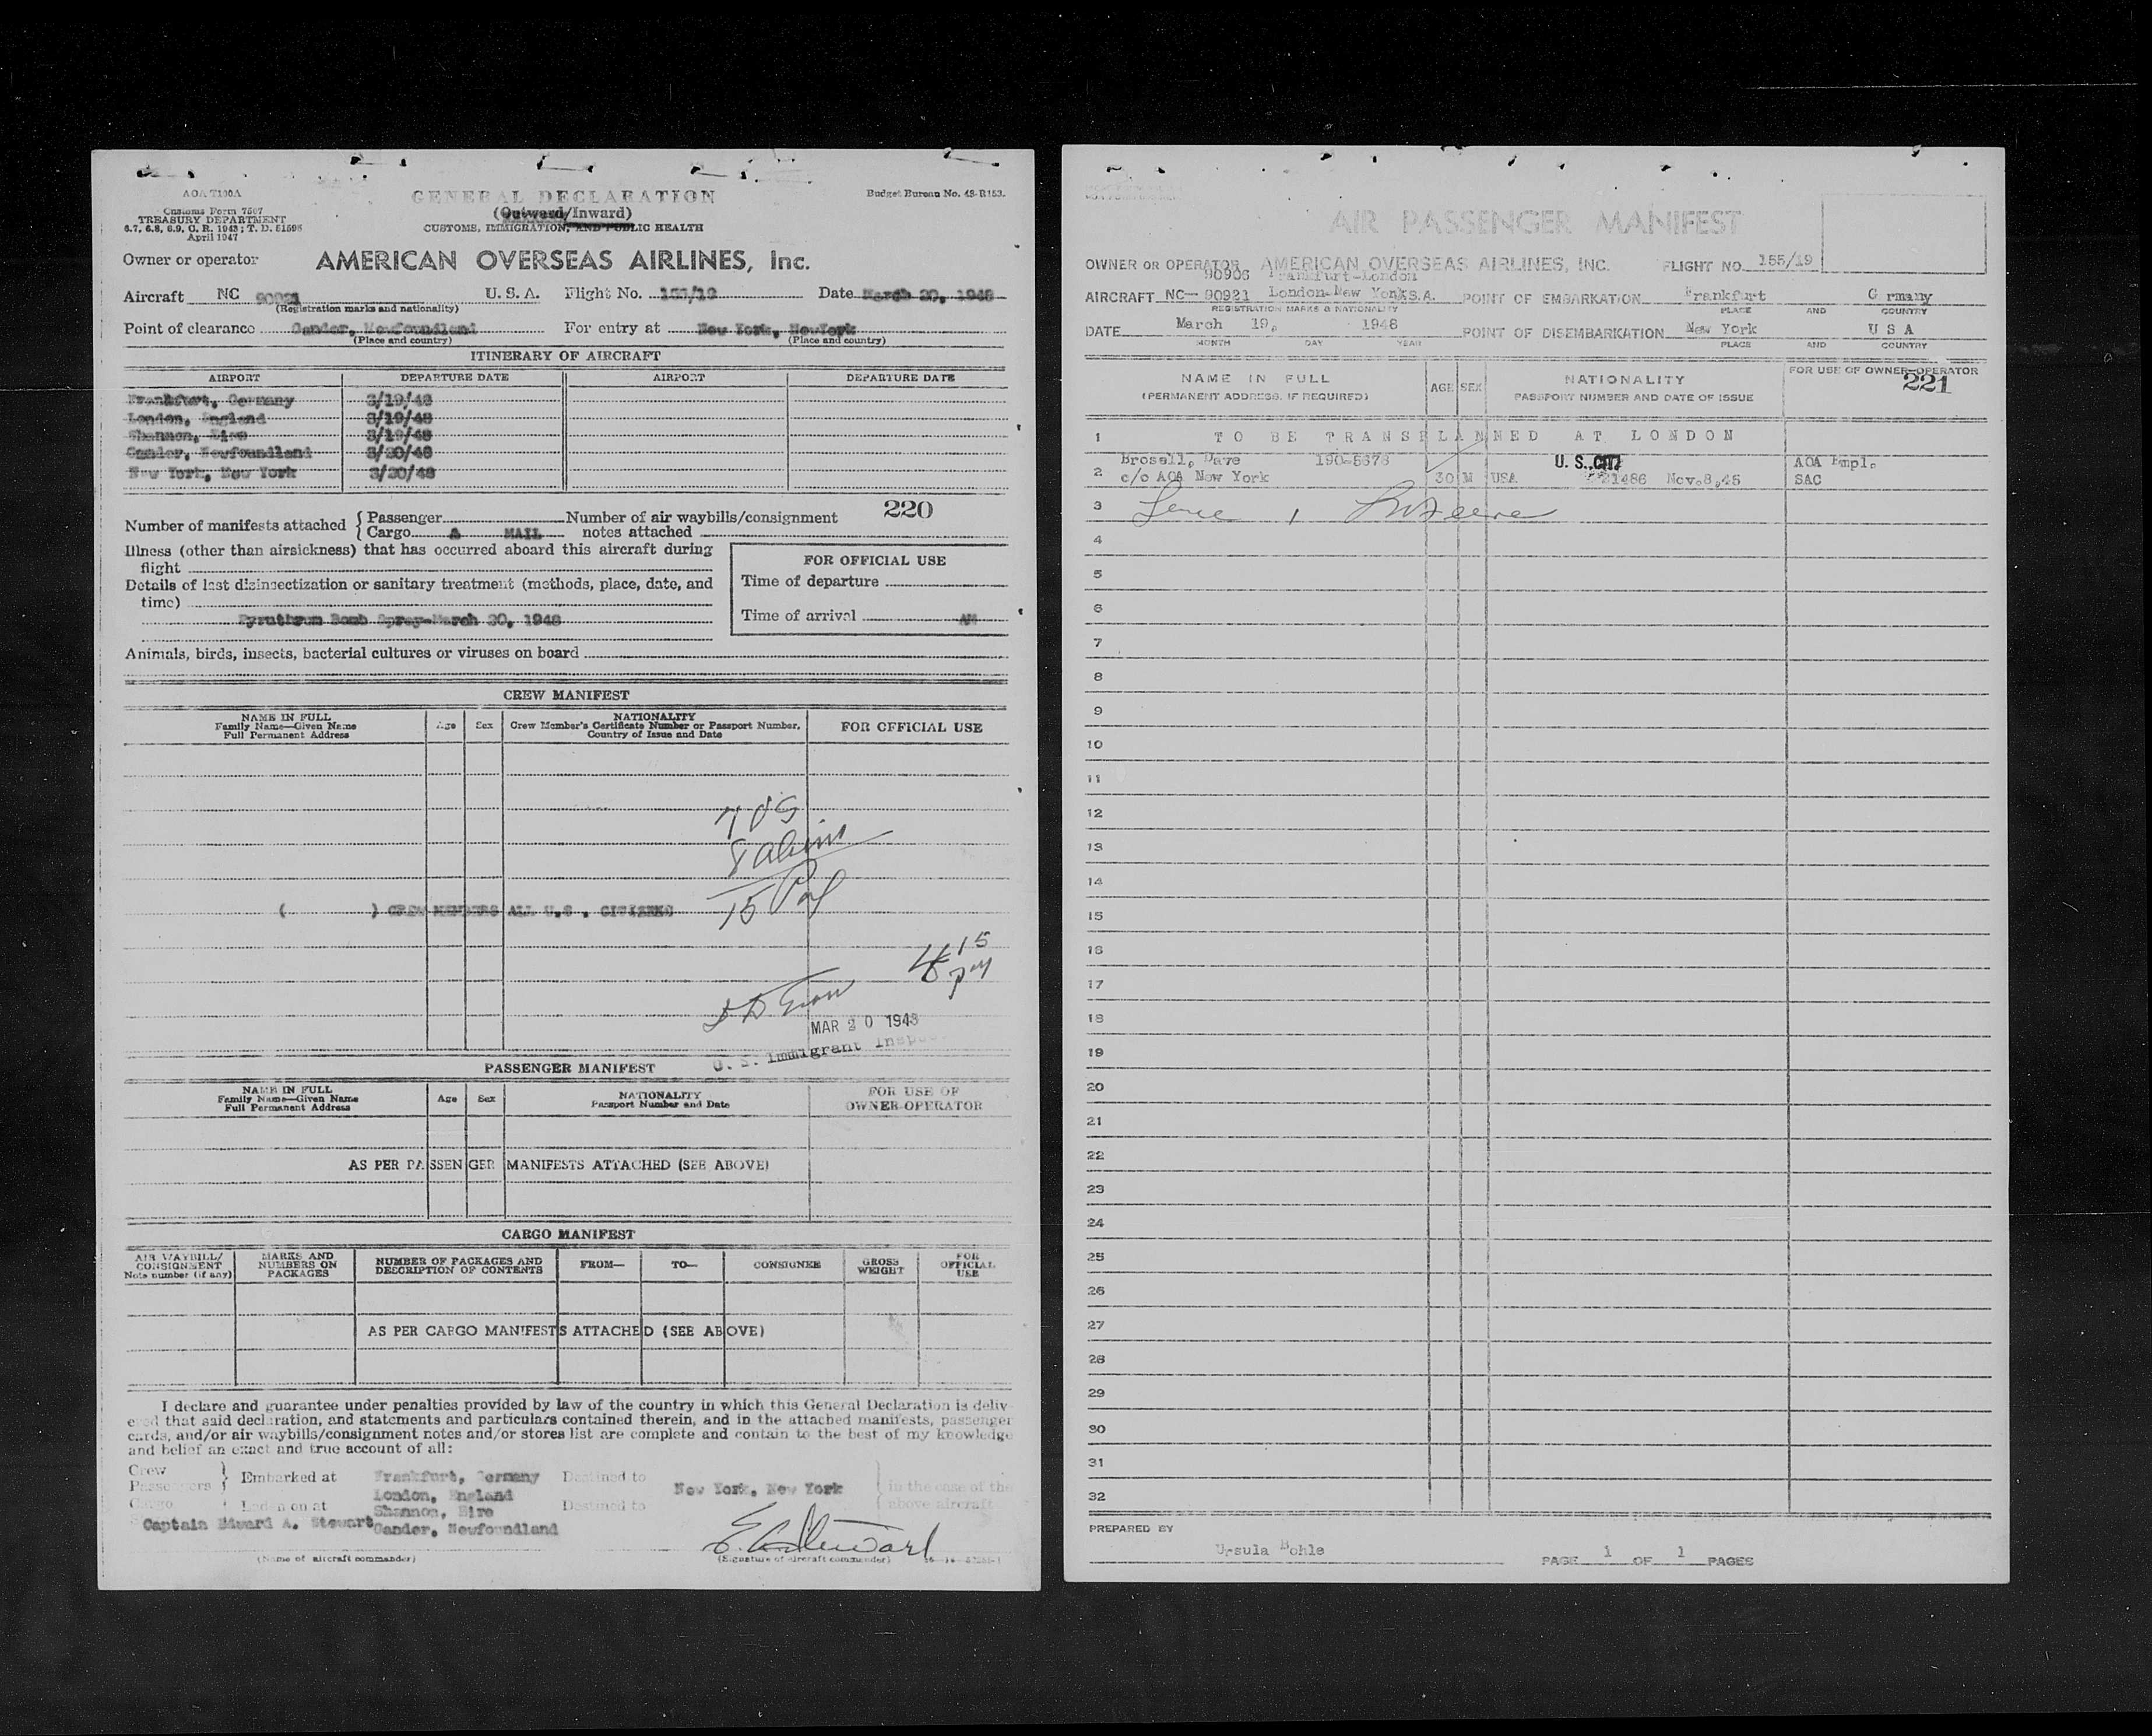 AOA T100A
Customs Form 7507
TREASURY DEPARTMENT
6.7, 6.8, 6.9, C. R. 1943; T. D. 51595
April 1947
GENERAL DECLARATION
(Outward/Inward)
CUSTOMS, IMMIGRATION, AND PUBLIC HEALTH
Budget Bureau No. 48-R153.
Owner or operator AMERICAN OVERSEAS AIRLINES, Inc.
Aircraft NC 90921 U. S. A. Flight No. 155/19 Date March 20, 1948
(Registration marks and nationality)
Point of clearance Gander, Newfoundland For entry at New York, NewYork
(Place and country) (Place and country)
ITINERARY OF AIRCRAFT
AIRPORT DEPARTURE DATE AIRPORT DEPARTURE DATE
Frankfurt, Germany 3/19/48
London, England 3/19/48
Shannon, Eire 3/19/48
Gander, Newfoundland 3/20/48
New York, New York 3/20/48
220
Number of manifests attached { Passenger Number of air waybills/consignment
Cargo A MAIL notes attached
Illness (other than airsickness) that has occurred aboard this aircraft during
flight
Details of last disinsectization or sanitary treatment (methods, place, date, and
time)
Pyruthrum Bomb Spray-March 20, 1948
FOR OFFICIAL USE
Time of departure
Time of arrival AM
Animals, birds, insects, bacterial cultures or viruses on board
CREW MANIFEST
NAME IN FULL
Family Name—Given Name
Full Permanent Address
Age Sex
NATIONALITY
Crew Member's Certificate Number or Passport Number,
Country of Issue and Date
FOR OFFICIAL USE
7 US
8 aliens
15
( ) CREW MEMBERS ALL U.S . CITIZENS
4 15
pm
MAR 20 1948
U. S. Immigrant Inspec
PASSENGER MANIFEST
NAME IN FULL
Family Name—Given Name
Full Permanent Address
Age Sex
NATIONALITY
Passport Number and Date
FOR USE OF
OWNER-OPERATOR
AS PER PASSENGER MANIFESTS ATTACHED (SEE ABOVE)
CARGO MANIFEST
AIR WAYBILL/
CONSIGNMENT
Note number (if any)
MARKS AND
NUMBERS ON
PACKAGES
NUMBER OF PACKAGES AND
DESCRIPTION OF CONTENTS
FROM— TO— CONSIGNEE
GROSS
WEIGHT
FOR
OFFICIAL
USE
AS PER CARGO MANIFESTS ATTACHED (SEE ABOVE)
I declare and guarantee under penalties provided by law of the country in which this General Declaration is deliv-
ered that said declaration, and statements and particulars contained therein, and in the attached manifests, passenger
cards, and/or air waybills/consignment notes and/or stores list are complete and contain to the best of my knowledge
and belief an exact and true account of all:
Crew
Passengers } Embarked at Frankfurt, Germany Destined to New York, New York { in the case of the
London, England
Cargo Laden on at Shannon, Eire Destined to above aircraft
Captain Edward A. Stewart Gander, Newfoundland
E. A. Stewart
(Name of aircraft commander) (Signature of aircraft commander)
AIR PASSENGER MANIFEST
OWNER OR OPERATOR AMERICAN OVERSEAS AIRLINES, INC. FLIGHT NO. 155/19
90906 Frankfurt-London
AIRCRAFT NC— 90921 London-New York U.S.A. POINT OF EMBARKATION Frankfurt G rmany
REGISTRATION MARKS & NATIONALITY PLACE AND COUNTRY
DATE March 19, 1948 POINT OF DISEMBARKATION New York U S A
MONTH DAY YEAR PLACE AND COUNTRY
NAME IN FULL
(PERMANENT ADDRESS, IF REQUIRED)
AGE SEX
NATIONALITY
PASSPORT NUMBER AND DATE OF ISSUE
FOR USE OF OWNER-OPERATOR
221
1 TO BE TRANSPLANNED AT LONDON
Brosell, Dave 190-5678 U. S. CIT. AOA Empl.
2 c/o AOA New York 30 M USA 21486 Nov.8,46 SAC
3
4
5
6
7
8
9
10
11
12
13
14
15
16
17
18
19
20
21
22
23
24
25
26
27
28
29
30
31
32
PREPARED BY
Ursula Bohle
PAGE 1 OF 1 PAGES